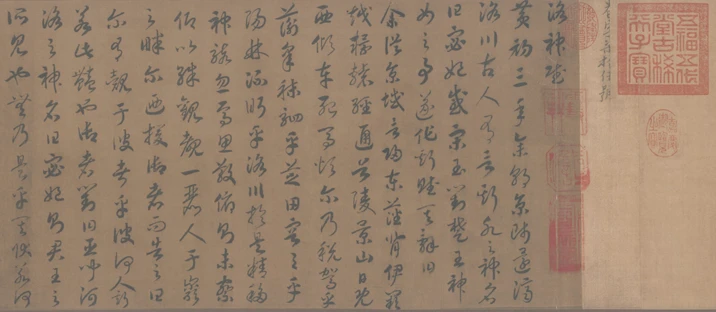 五福五代堂古稀天子寶
洛神賦
黃初三年余朝京師還濟
洛川古人有言斯水之神名
曰宓妃感宋玉對楚王神
女之事遂作斯賦其辭曰
余從京域言歸東藩背伊闕
越轘轅經通谷陵景山日既
西傾車殆馬煩爾乃稅駕乎
蘅皋秣駟乎芝田容與乎
陽林流眄乎洛川於是精移
神駭忽焉思散俯則未察
仰以殊觀覩一麗人于巖
之畔爾迺援御者而告之曰
爾有覿于彼者乎彼何人斯
若此豔也御者對曰臣聞河
洛之神名曰宓妃則君王之
所見也無乃是乎其狀若何